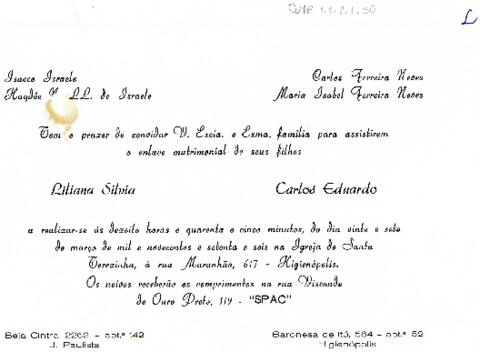 L
Isacco Israele
Carlos Ferreira Neves
Haydée LL. de Israele
Maria Isabel Ferreira Neves
Tem o prazer de convidar V. Excia. e Exma. família para assistirem
o enlace matrimonial de seus filhos
Liliana Silvia
Carlos Eduardo
a realizar-se às dezoito horas e quarenta e cinco minutos, do dia vinte e sete
de março de mil e novecentos e setenta e seis na Igreja de Santa
Terezinha, à rua Maranhão, 617 - Higienópolis.
Os noivos receberão os cumprimentos na rua Visconde
de Ouro Preto, 119 - "SPAC"
Bela Cintra, 2262 - apt.º 142
Baronesa de Itú, 564 - apt.º 52
J. Paulista
Higienópolis